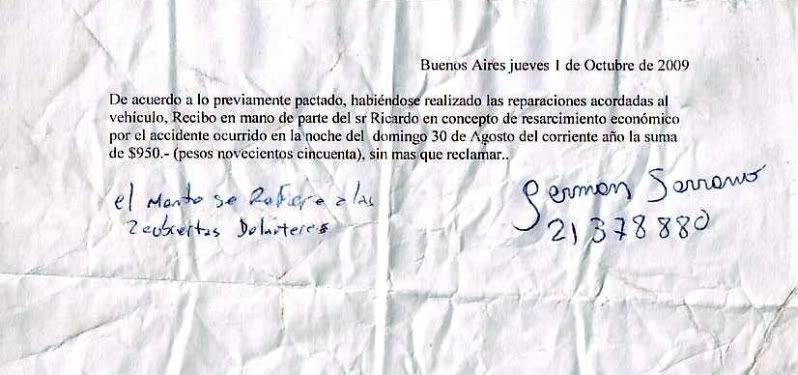 Buenos Aires jueves 1 de Octubre de 2009
De acuerdo a lo previamente pactado, habiéndose realizado las reparaciones acordadas al
vehículo, Recibo en mano de parte del sr Ricardo en concepto de resarcimiento económico
por el accidente ocurrido en la noche del domingo 30 de Agosto del corriente año la suma
de $950.- (pesos novecientos cincuenta), sin mas que reclamar..
el Monto se Refiere a las
2 cubiertas Delanteras
German Serrano
21378880